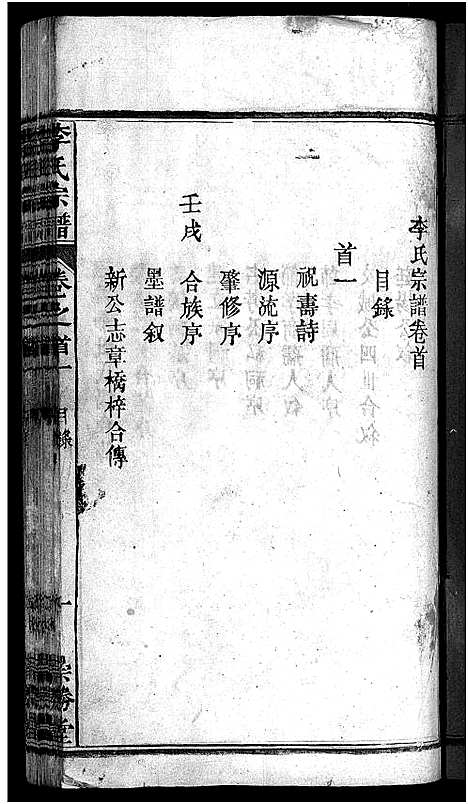 李氏宗譜卷首
目錄
首一
祝壽詩
源流序
肇修序
壬戌 合族序
墨譜叙
新公志章橋梓合傳
李氏宗譜
卷之首一
目錄
一